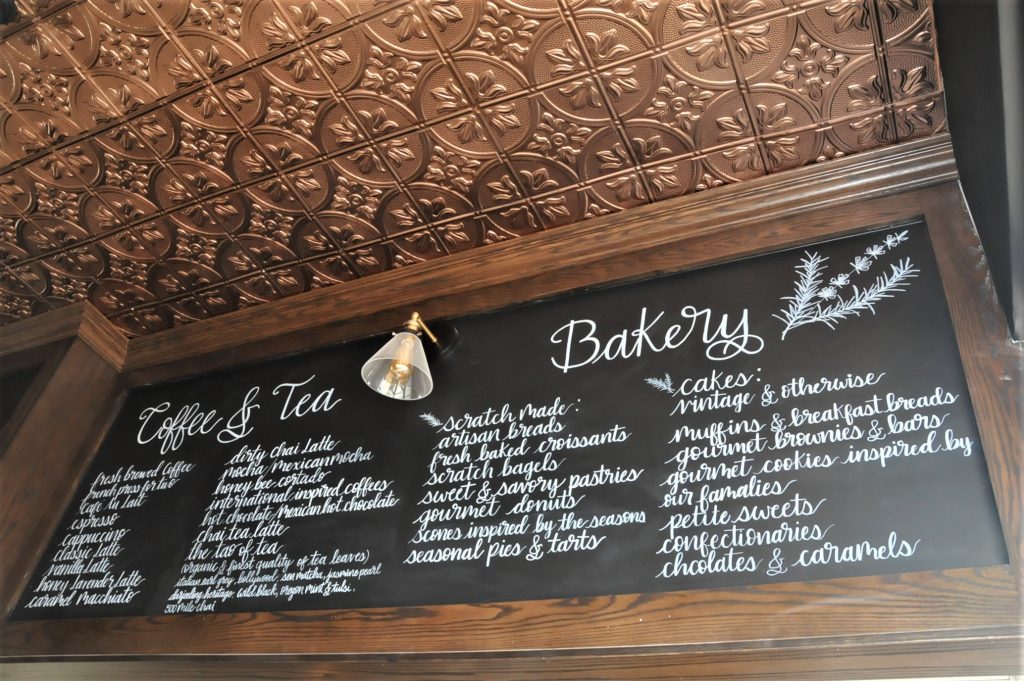 Coffee & Tea
fresh brewed coffee
french press for two
Cafe Au Lait
espresso
cappuccino
classic latte
vanilla latte
honey lavender latte
caramel macchiato
dirty chai latte
mocha/mexican mocha
honey bee cortado
international inspired coffees
hot chocolate/Mexican hot chocolate
chai tea latte
the tao of tea
(organic & finest quality of tea leaves)
italian earl grey, bollywood, sen matcha, jasmine pearl
darjeeling heritage, wild black, oregon mint & tulsi,
500 mile chai
Bakery
scratch made:
artisan breads
fresh baked croissants
scratch bagels
sweet & savory pastries
gourmet donuts
scones inspired by the seasons
seasonal pies & tarts
cakes:
vintage & otherwise
muffins & breakfast breads
gourmet brownies & bars
gourmet cookies inspired by
our famalies
petite sweets
confectionaries
chcolates & caramels